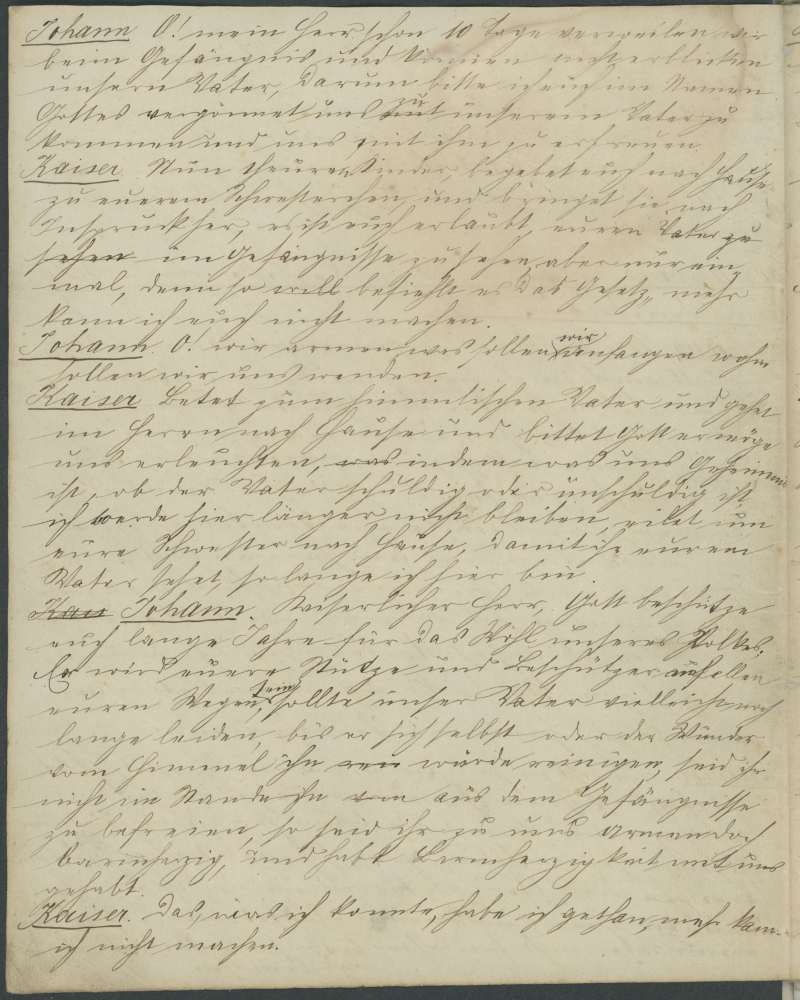 Johann O! mein Herr, schon 10 Tage verweilen wir
beim Gefängnis und können nicht erblicken
unsern Vater, Darum bitte ich euch im Namen
Gottes vergönnet uns zu unserem Vater zu
kommen und uns mit ihm zu erfreuen.
Kaiser. Nun theuren Kinder, begebet euch nach Hause
zu euerem Schwesterchen und bringet sie nach
Inspruck her, es ist euch erlaubt, euren Vater zu
sehen im Gefängnisse zu sehen, aber nur ein-
mal, denn so will befiehlt es das Gesetz, mehr
kann ich euch nicht machen.
Johann O! wir armen, was sollen wir anfangen wohin
sollen wir uns wenden.
Kaiser Betet zum himmlischen Vater und gehet
im Herrn nach Hause und bittet Gott er möge
uns erleuchten, was indem was uns Geheimnis
ist, ob der Vater schuldig oder unschuldig ist
ich werde hier länger nicht bleiben, eilet um
eure Schwester nach Hause, damit ihr eueren
Vater sehet, so lange ich hier bin.
Kais Johann. Kaiserlicher Herr, Gott beschütze
euch lange Jahre für das Wohl unseres Volkes;
Er wird euere Stütze und Beschützer auf allen
euren Wegen, sollte unser Vater vielleicht noch
lange leiden, bis er sich selbst oder der Wunder
vom Himmel ihn rein würde reinigen, seid ihr
nicht im Stande ihn von aus dem Gefängnisse
zu befreien, so seid ihr zu uns armen doch
barmherzig, und habt Barmherzigkeit mit uns
gehabt.
Kaiser. Das, was ich konnte, habe ich gethan, mehr kann
ich nicht machen.